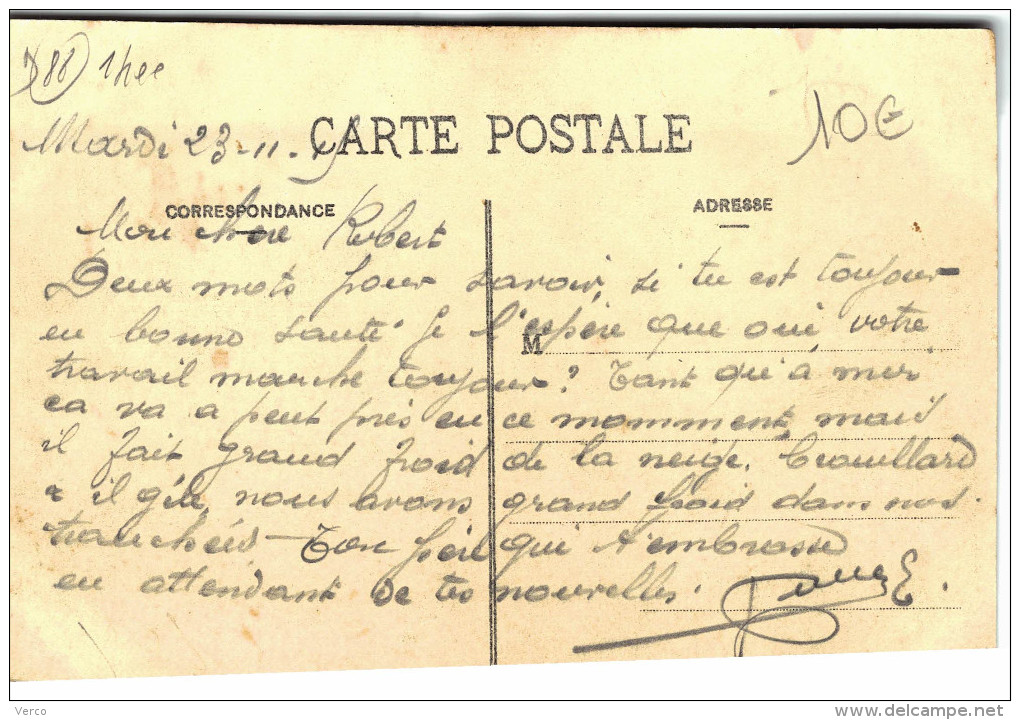 D88
10€
Mardi 23-11-15
CARTE POSTALE
CORRESPONDANCE
ADRESSE
Mon chere Robert
Deux mots pour savoir, si tu est toujour
en bonne santé. Je l'espére que oui, votre
M
travail marche toujour? Tant qu'à moi
ca va a peut près en ce momment, mais
il fait grand froid de la neige, brouillard
& il gèle, nous avons grand froid dans nos
tranchéés - Ton frère qui t'embrasse
en attendant de tes nouvelles.
Verco
delcampe.net